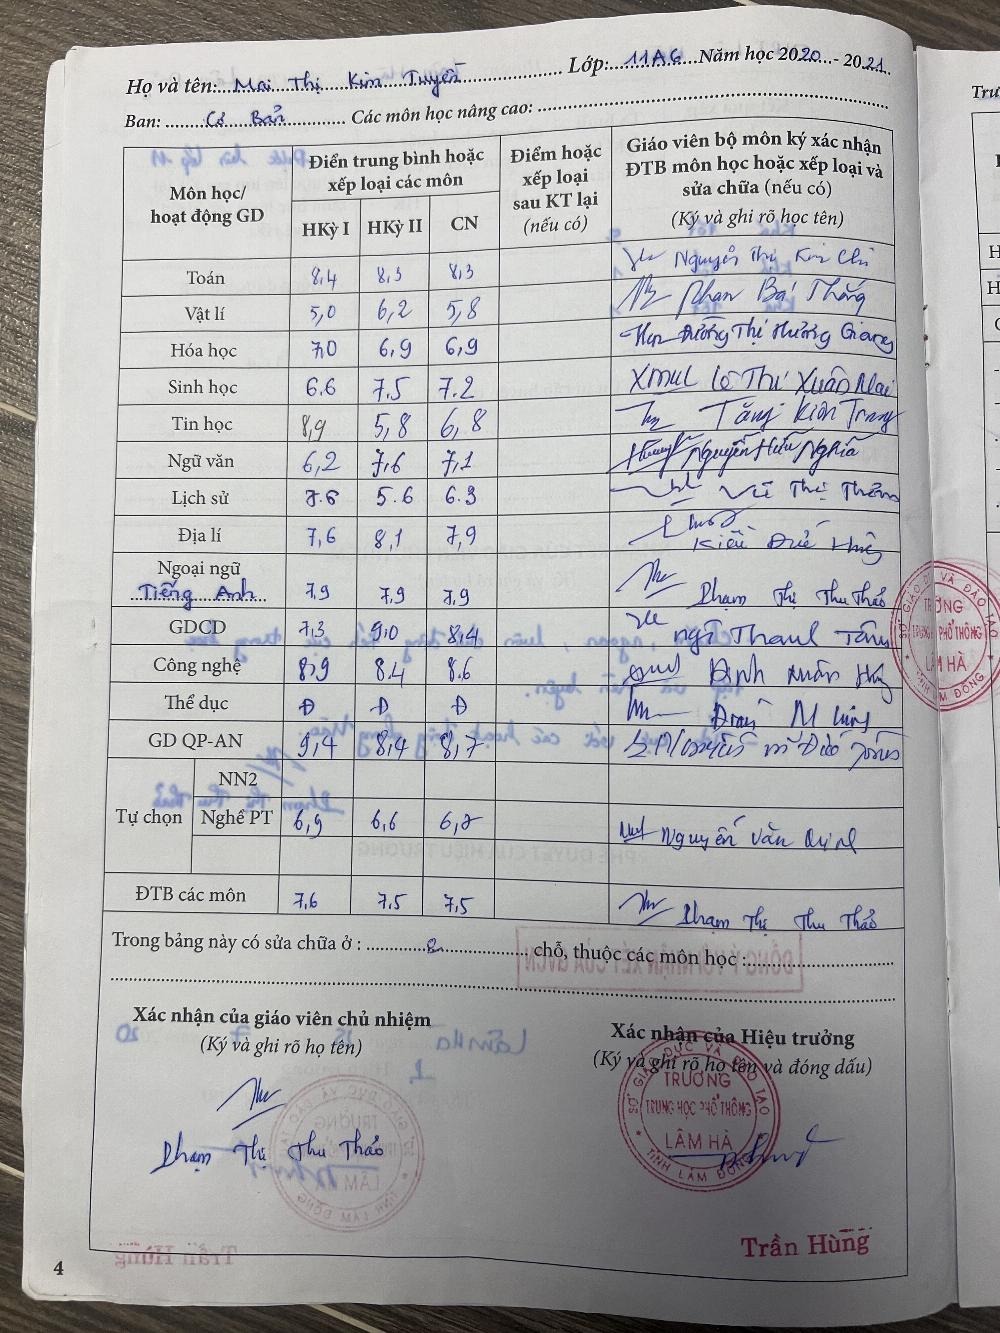 Họ và tên: Mai Thị Kim Tuyền Lớp: 11A6 Năm học 2020 - 2021
Ban: Cơ Bản Các môn học nâng cao:
Môn học/ hoạt động GD
Điển trung bình hoặc xếp loại các môn
HKỳ I HKỳ II CN
Điểm hoặc xếp loại sau KT lại (nếu có)
Giáo viên bộ môn ký xác nhận ĐTB môn học hoặc xếp loại và sửa chữa (nếu có)
(Ký và ghi rõ học tên)
Toán 8,4 8,3 8,3 Nguyễn Thị Kim Chi
Vật lí 5,0 6,2 5,8 Phan Bá Thắng
Hóa học 7,0 6,9 6,9 Dương Thị Hương Giang
Sinh học 6.6 7.5 7.2 Lê Thị Xuân Mai
Tin học 8,9 5,8 6,8 Tăng Kiên Trang
Ngữ văn 6,2 7,6 7,1 Nguyễn Hữu Nghĩa
Lịch sử 7.6 5.6 6.3 Vũ Thị
Địa lí 7,6 8,1 7,9 Kiều Đức
Ngoại ngữ
Tiếng Anh 7.9 7.9 7.9 Phạm Thị Thu Thảo
GDCD 7,3 9,0 8,4 Thanh Tâm
Công nghệ 8,9 8.4 8.6 Định Xuân
Thể dục Đ Đ Đ
GD QP-AN 9,4 8,4 8,7
Tự chọn
NN2
Nghề PT 6,9 6,6 6,7 Nguyễn Văn
ĐTB các môn 7,6 7,5 7,5 Phạm Thị Thu Thảo
Trong bảng này có sửa chữa ở : chỗ, thuộc các môn học :
Xác nhận của giáo viên chủ nhiệm
(Ký và ghi rõ họ tên)
Phạm Thị Thu Thảo
Xác nhận của Hiệu trưởng
(Ký và ghi rõ họ tên và đóng dấu)
SỞ GIÁO DỤC VÀ ĐÀO TẠO
TRƯỜNG
TRUNG HỌC PHỔ THÔNG
LÂM HÀ
TỈNH LÂM ĐỒNG
Trần Hùng
4